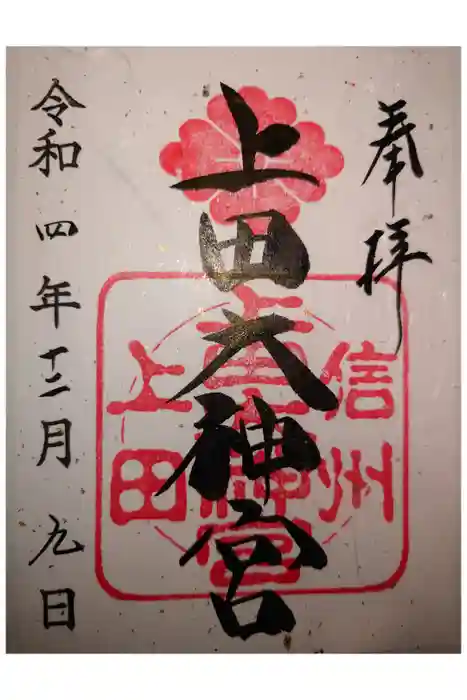 奉拝
上田大神宮
信州
上田
令和四年十二月九日